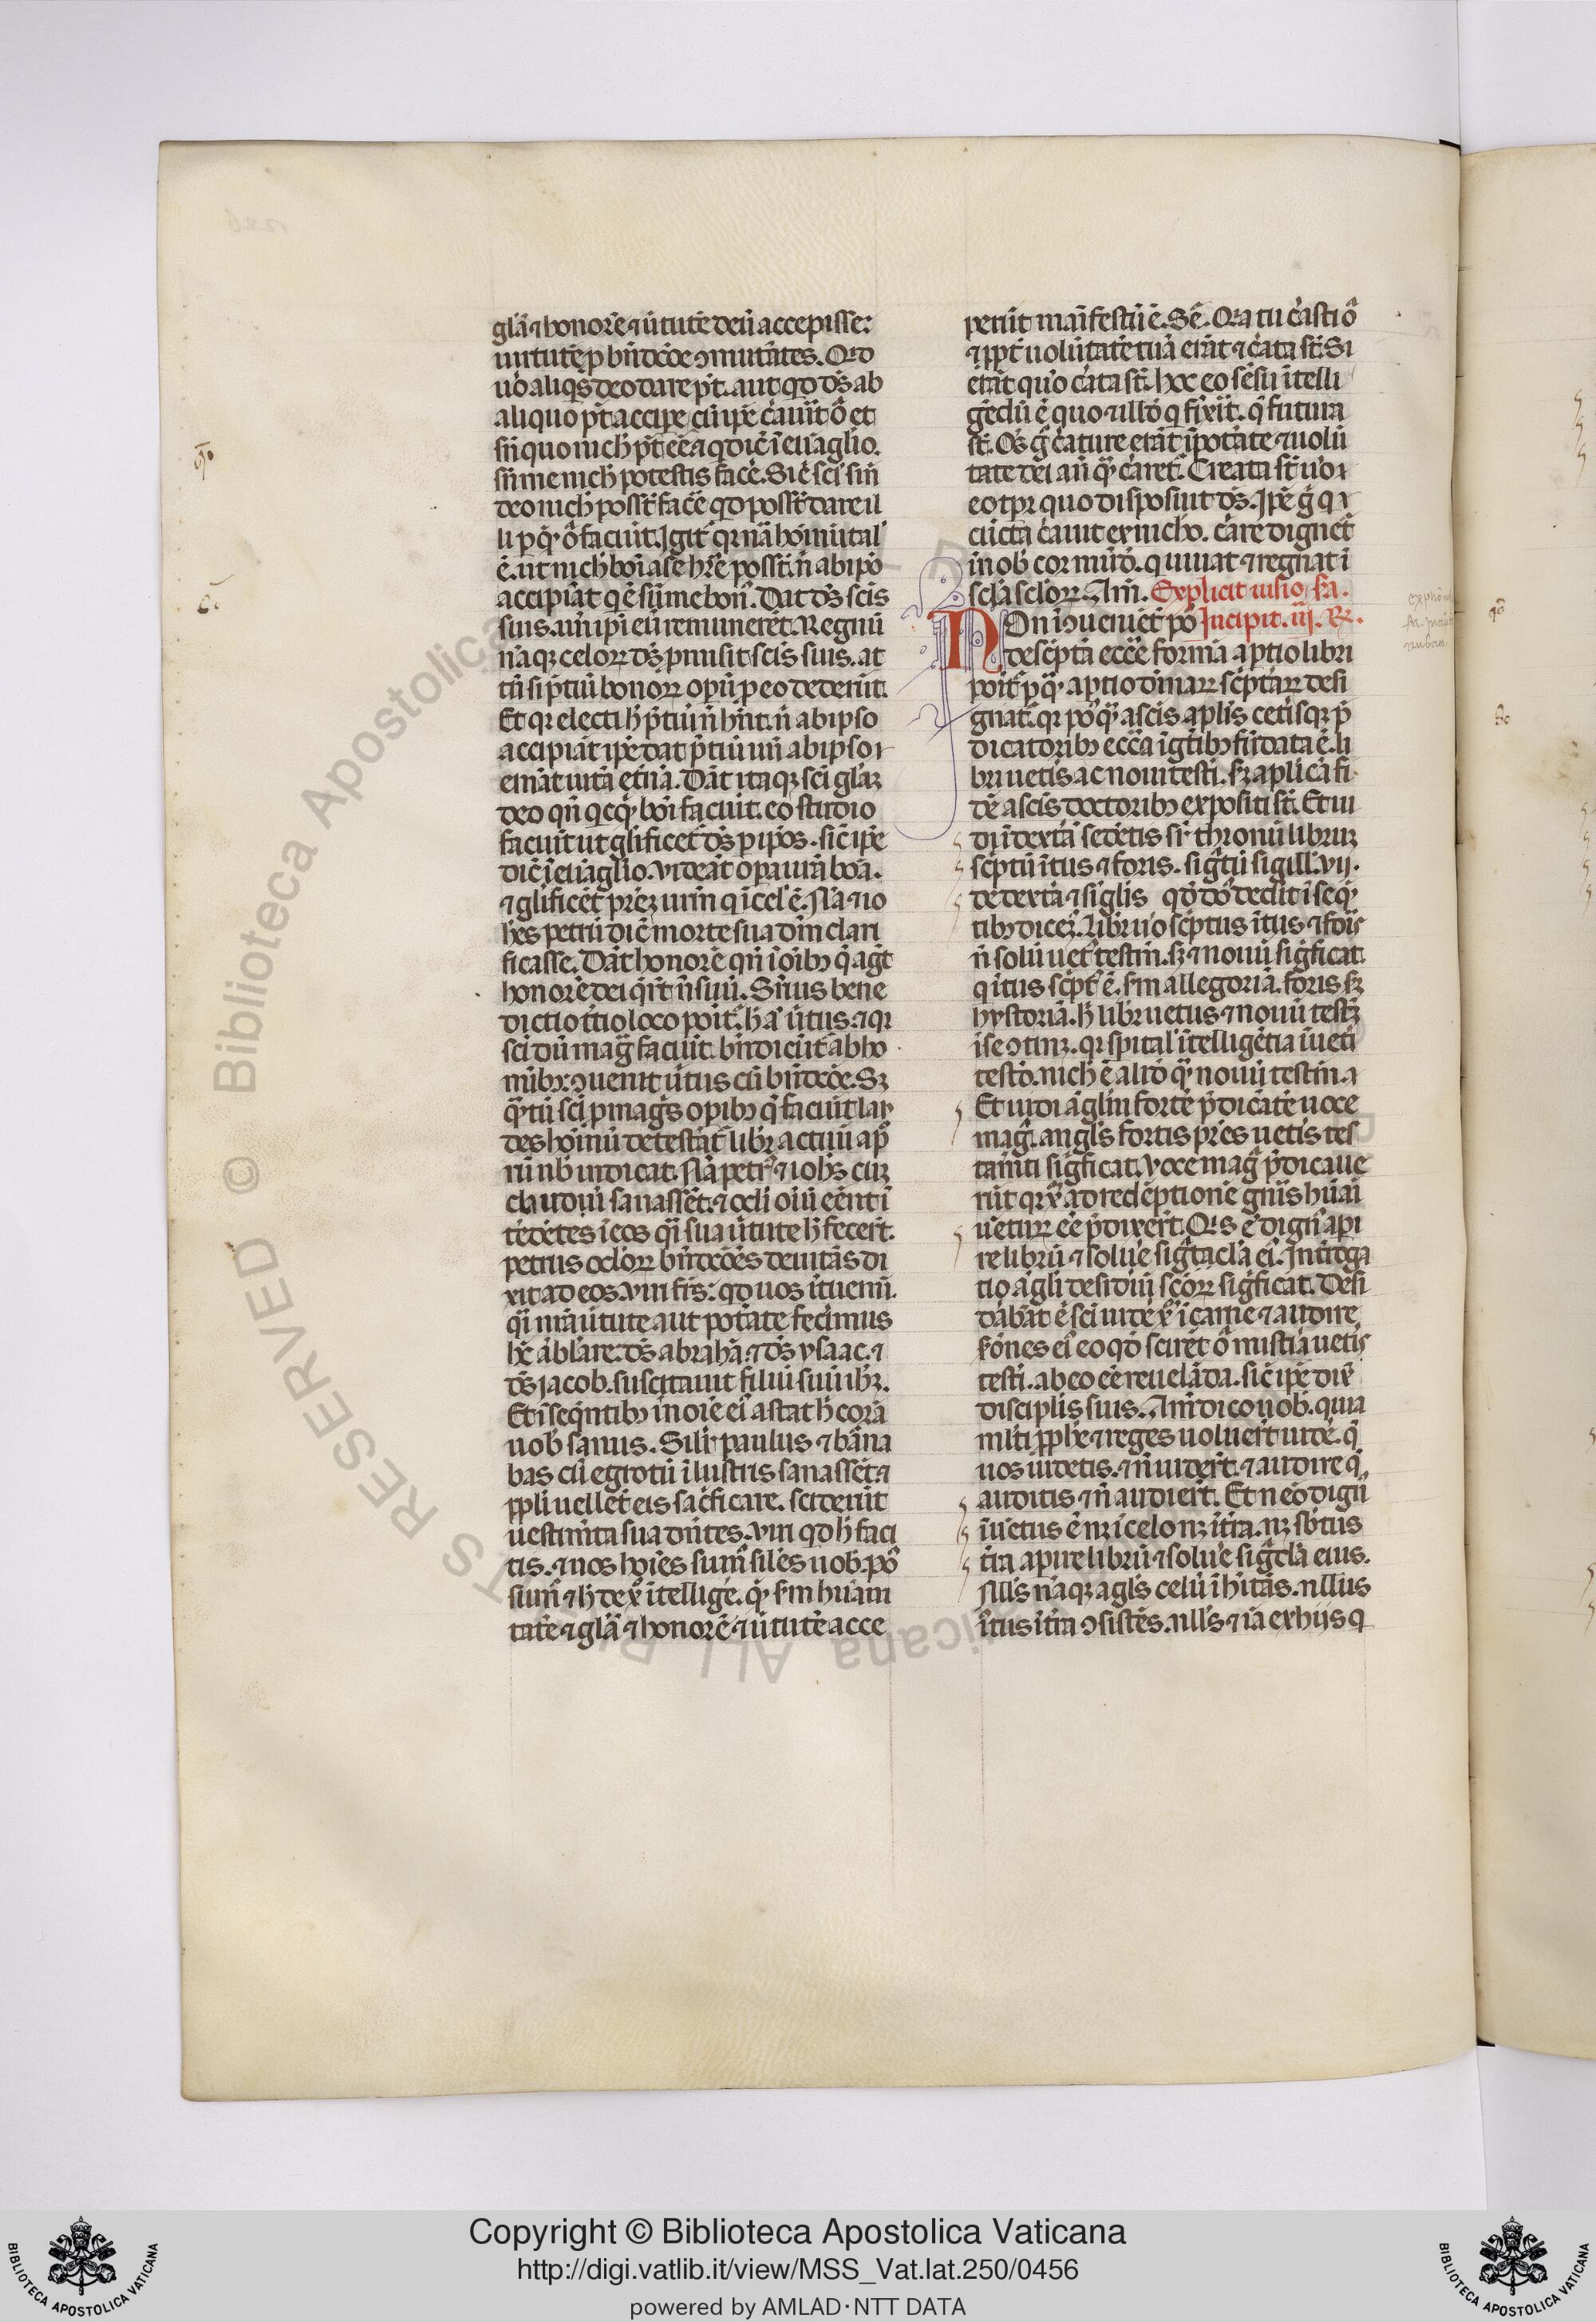 glā ⁊ honorē ⁊ ūtutē deū accepisse:
uirtutē ꝓ bn̄dcōe ꝯmutātes. Qd̓
uō aliqͥs deo dare pt̄. aut qd̓ ds̄ ab
aliquo pt̄ accipe cū ipē c̓auit oī̄a et
sn̄ quo nich̄ pt̄ eē ⁊ qd̓ dic̄ ī euāglio.
sn̄ me nich̄ potestis facē. Sic̄ sc̄i sn̄
deo nich̄ poss̄t facē qd̓ poss̄t dare il
li ꝓ q̄ oī̄a faciūt. Igit̄ qr nā hoīnū tal̄
ē. ut nich̄ boī a se hr̄e poss̄it n̄ ab ipō
accipiāt qͥ ē sūme bon̄. Dat ds̄ sc̄is
suis. un̄ ipī eū remunerēt. Regnū
nāqꝫ celoꝝ ds̄ ꝓmisit sc̄is suis. at
tn̄ si p̄tiū bonoꝝ opū ꝓ eo dederīt.
Et qr electi h̄ p̄tiū n̄ hn̄t. n̄ ab ipso
accipiāt ipē dat p̄tiū un̄ ab ipso ⁊
emāt uitā et̄nā. Dāt itaqꝫ sc̄i gl̄aꝫ
deo qn̄ qcqͥd boī faciūt. eo studio
faciūt ut gl̄ificet̄ ds̄ ꝑ ip̄os. sic̄ ipē
dic̄ ī euāglio. Videāt opa uir̄a boā.
⁊ gl̄ificēt pr̄eꝫ ur̄m qͥ ī cel̄ ē. Nā ⁊ io
h̄es petrū dic̄ morte sua dn̄m clari
ficasse. Dāt honorē qn̄ ī oībꝫ q̄ agūt
honorē dei qͥrūt n̄ suū. Sꝫ ūtus bene
dictio t̄tio loco poīt̄. h̄ ā ūtus. ⁊ qr
sc̄i dū mag̅ faciūt. bn̄dicūt̄ ab ho
mībꝫ: ꝯuenit ūtus cū bn̄dcōe. Sꝫ
qͣtū sc̄i ꝓ mag̅s opibꝫ q̄ faciūt lau
des hoīnū detestāt̄ libr̄ actuū ap̄
rū nb̄ indicat. Nā petr̄ ⁊ ioh̄s cuꝫ
claudū sanassēt. ⁊ ocl̄i oīū eēnt ī
tēdētes ī eos qͣi sua ūtute h̄ fecerīt.
petrus oclōꝝ bn̄dcōēs deuitās di
xit ad eos. Viri fr̄s: qd̓ uos ītuemī.
qͣi nr̄a ūtute aut potāte fecimus
hc̄ āblare. ds̄ abrahā. ⁊ ds̄ ysaac. ⁊
ds̄ iacob. suscitauit filiū suū ih̄ꝫ.
Et ī seqn̄tibꝫ in noīe eī astat h̄ corā
uob̄ sanus. Silr̄ paulus ⁊ bārna
bas cū egrotū ī lustris sanassēt. ⁊
ppl̄i uellēt eis sac̓ficare. sciderūt
uestimēta sua dn̄tes. Viri qd̓ h̄ faci
tis. ⁊ nos hoīes sum̄ sil̄es uob̄. pos̄
sum̄ ⁊ h̄ de xͦ ītellige. qͥ sm̄ huām
tatē ⁊ glā ⁊ honorē ⁊ ūtutē acce
perūt manifestū ē. Sꝫ. Qr tu c̓asti oī̄a
⁊ ppt̄ uolūtatē tuā erāt ⁊ c̓ata st̄. Si
erāt quō c̓ata st̄. hoc eo sēsu ītelli
gēdū ē quo ⁊ illō q̄ fixit. q̄ futura
st̄. Oēs g̊ c̓ature erāt ī potāte ⁊ uolū
tate dei an̄ qͣ c̓aret̄. Creata st̄ uō ⁊
eo tp̄r quo disposuit ds̄. Ipē g̊ qͥ
cūcta c̓auit ex nichō. c̓are dignet̄
in ob̄ cor mūdū. qͥ uiuat ⁊ regnat ī
scl̄a scl̄oꝝ. Am̄. Explicit uisio. sa.
NOn ī ꝯueniēt̄ pō Incipit. iij. R̄.
descpta ecc̄e forma aptio libri
poīt̄. ꝑ qͣ aptio dīnaꝝ scptaꝝ desi
gnat̄. qr pō qͣ a sc̄is apl̄is cet̄isqꝫ p̄
dicatoribꝫ ecc̄a ī gētibꝫ fūdata ē. li
bri uet̄is ac noui testi. sꝫ aplicā fi
dē a sc̄is doctoribꝫ expositi st̄. Et ui
di ī dextā sedētis sr̄ thronū libruꝫ
scptū ītus ⁊ foris. sig̅tū sigill̄ vij.
de dextā ⁊ sigl̄is qd̓ dō dedit ī seqn̄
tibꝫ dicet̄. Libr̄ uō scptus ītus ⁊ foīs
n̄ solū uet̄ testm̄. sꝫ ⁊ nouū sig̅ficat.
qͥ ītus scpt̄ ē. sm̄ allegoriā. foris sꝫ
hystoriā. h̄ libr̄ uetus ⁊ nouū testꝫ
ī se ꝯtinꝫ. qr spital̄ ītelligētia ī uet̄i
testo. nich̄ ē aliō qͣ nouū testm̄. ⁊
Et uidi āglm fortē p̄dicātē uoce
mag̅. angl̄s fortis p̄res uet̄is tes
tam̄ti sig̅ficat. Voce mag̅ p̄dicaue
rūt qr xͦ ad redēptionē gn̄is hūāi
uētuꝝ eē p̄dixerīt. Qͥs ē dign̄ api
re librū ⁊ solue sig̅tacl̄a eī. Int̄roga
tio āgl̄i desidiū sc̄oꝝ sig̅ficat. Desi
dābāt ē sc̄i uidē xͦ ī carne ⁊ audire
s̄mones eī eo qd̓ scirēt oī̄a mistīa uet̄is
testi. ab eo eē reuelāda. sic̄ ipē dix̄
disciplis suis. Am̄ dico uob̄. quia
ml̄ti ppl̄e ⁊ reges uoluer̄t uidē. q̄
uos uidetis. ⁊ n̄ uider̄t. ⁊ audire q̄
auditis ⁊ n̄ audier̄t. Et neō dign̄
īuētus ē nꝫ ī celo nꝫ ī t̄ra. nꝫ sbtus
t̄ra apire librū ⁊ solue sig̅cl̄a eius.
Nll̄s nāqꝫ āgl̄s celū īhitās. nllius
ītus ī t̄ra ꝯsistēs. nll̄s ⁊iā ex hijs qͥ
Copyright © Biblioteca Apostolica Vaticana
http://digi.vatlib.it/view/MSS_Vat.lat.250/0456
powered by AMLAD·NTT DATA